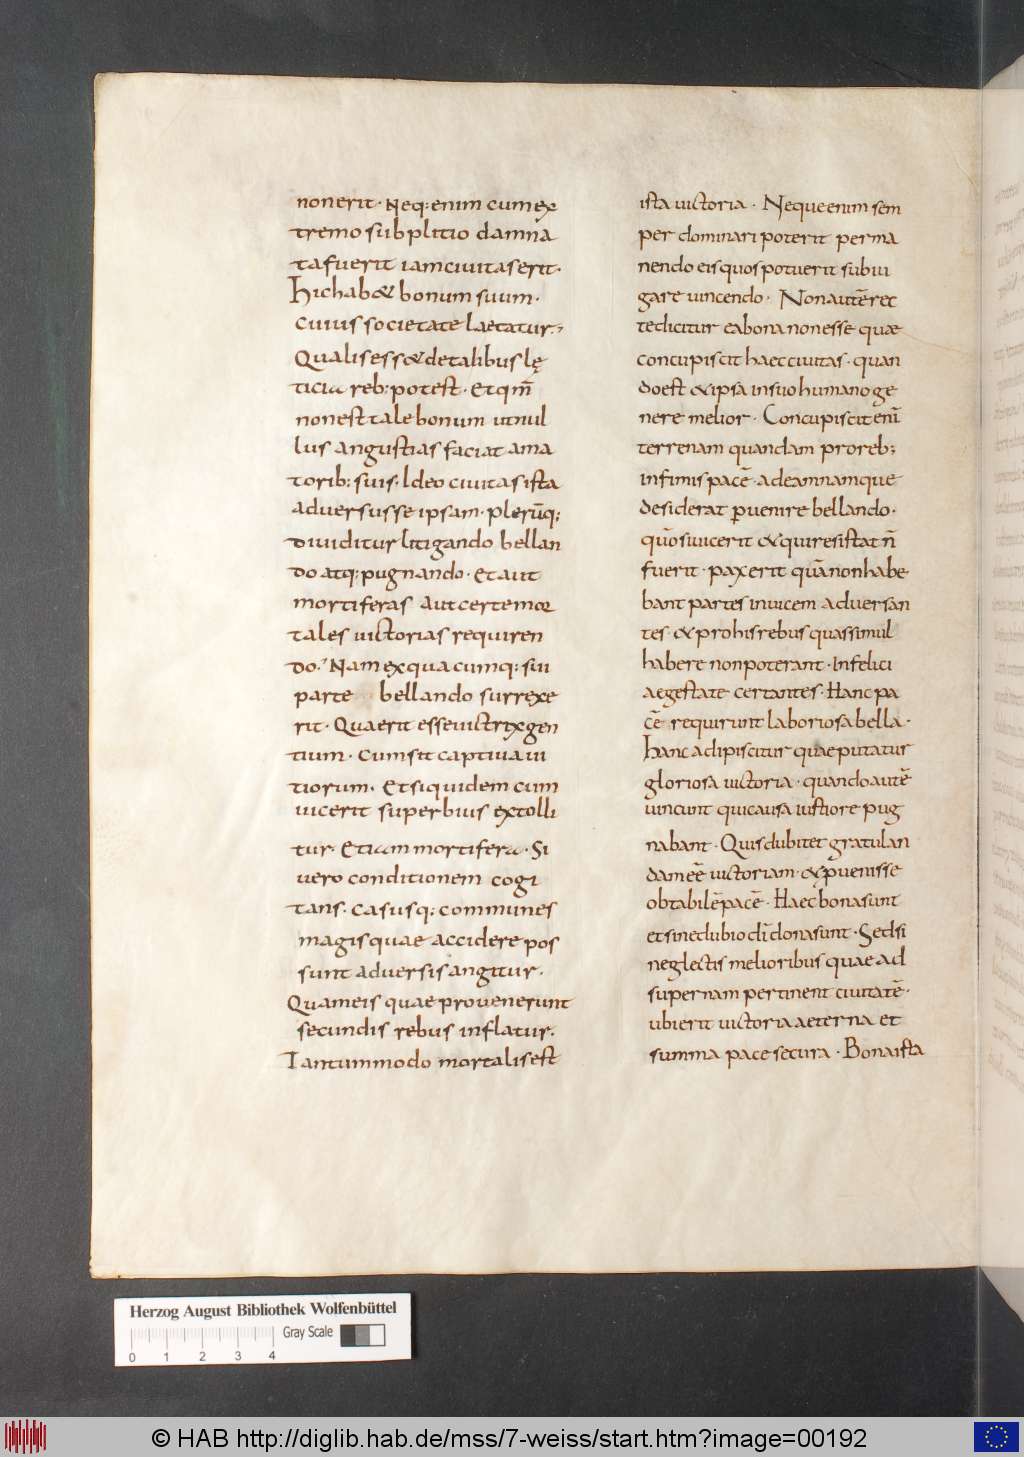 non erit· Neq: enim cum ex
tremo subplitio damna
ta fuerit iam civitas erit·
hic hab& bonum suum·
cuius societate laetatur·
Qualis ess& detalibus lę
ticia reb: potest· Et qm̄
non est tale bonum ut nul
lus angustias faciat ama
torib: suis· Ideo civitas ista
adversus se ipsam· plerūq:
dividitur litigando bellan
do atq: pugnando· Et aut
mortiferas aut certe mor
tales victorias requiren
do· Nam ex qua cumq: sui
parte bellando surrexe
rit· Quaerit esse victrix gen
tium· cum sit captiva vi
tiorum· Et si quidem cum
vicerit superbius extolli
tur· Etiam mortifera· Si
vero conditionem cogi
tans· casusq: communes
magis quae accidere pos
sunt adversis angitur·
Quam eis quae provenerunt
secundis rebus inflatur·
Tantummodo mortalis est
ista victoria· Neque enim sem
per dominari poterit perma
nendo eis quos potuerit subiu
gare vincendo· Non autē rec
te dicitur ea bona non esse quae
concupiscit haec civitas· quan
do est & ipsa in suo humano ge
nere melior· Concupiscit enī
terrenam quandam pro reb;
infimis pacē· ad eam namque
desiderat pvenire bellando·
quō si vicerit & qui resistat n̄
fuerit· pax erit quā non habe
bant partes invicem adversan
tes· & pro his rebus quas simul
habere non poterant· Infelici
aegestate certantes· Hanc pa
cē requirunt laboriosa bella·
hanc adipiscitur quae putatur
gloriosa victoria· quando autē
vincunt qui causa iustiore pug
nabant· Quis dubitet gratulan
dam eē victoriam· & pvenisse
obtabilē pacē· Haec bona sunt
et sine dubio dī dona sunt· Sed si
neglectis melioribus quae ad
supernam pertinent civitatē·
ubi erit victoria aeterna et
summa pace secura· Bona ista
Herzog August Bibliothek Wolfenbüttel
Gray Scale
0 1 2 3 4
© HAB http://diglib.hab.de/mss/7-weiss/start.htm?image=00192